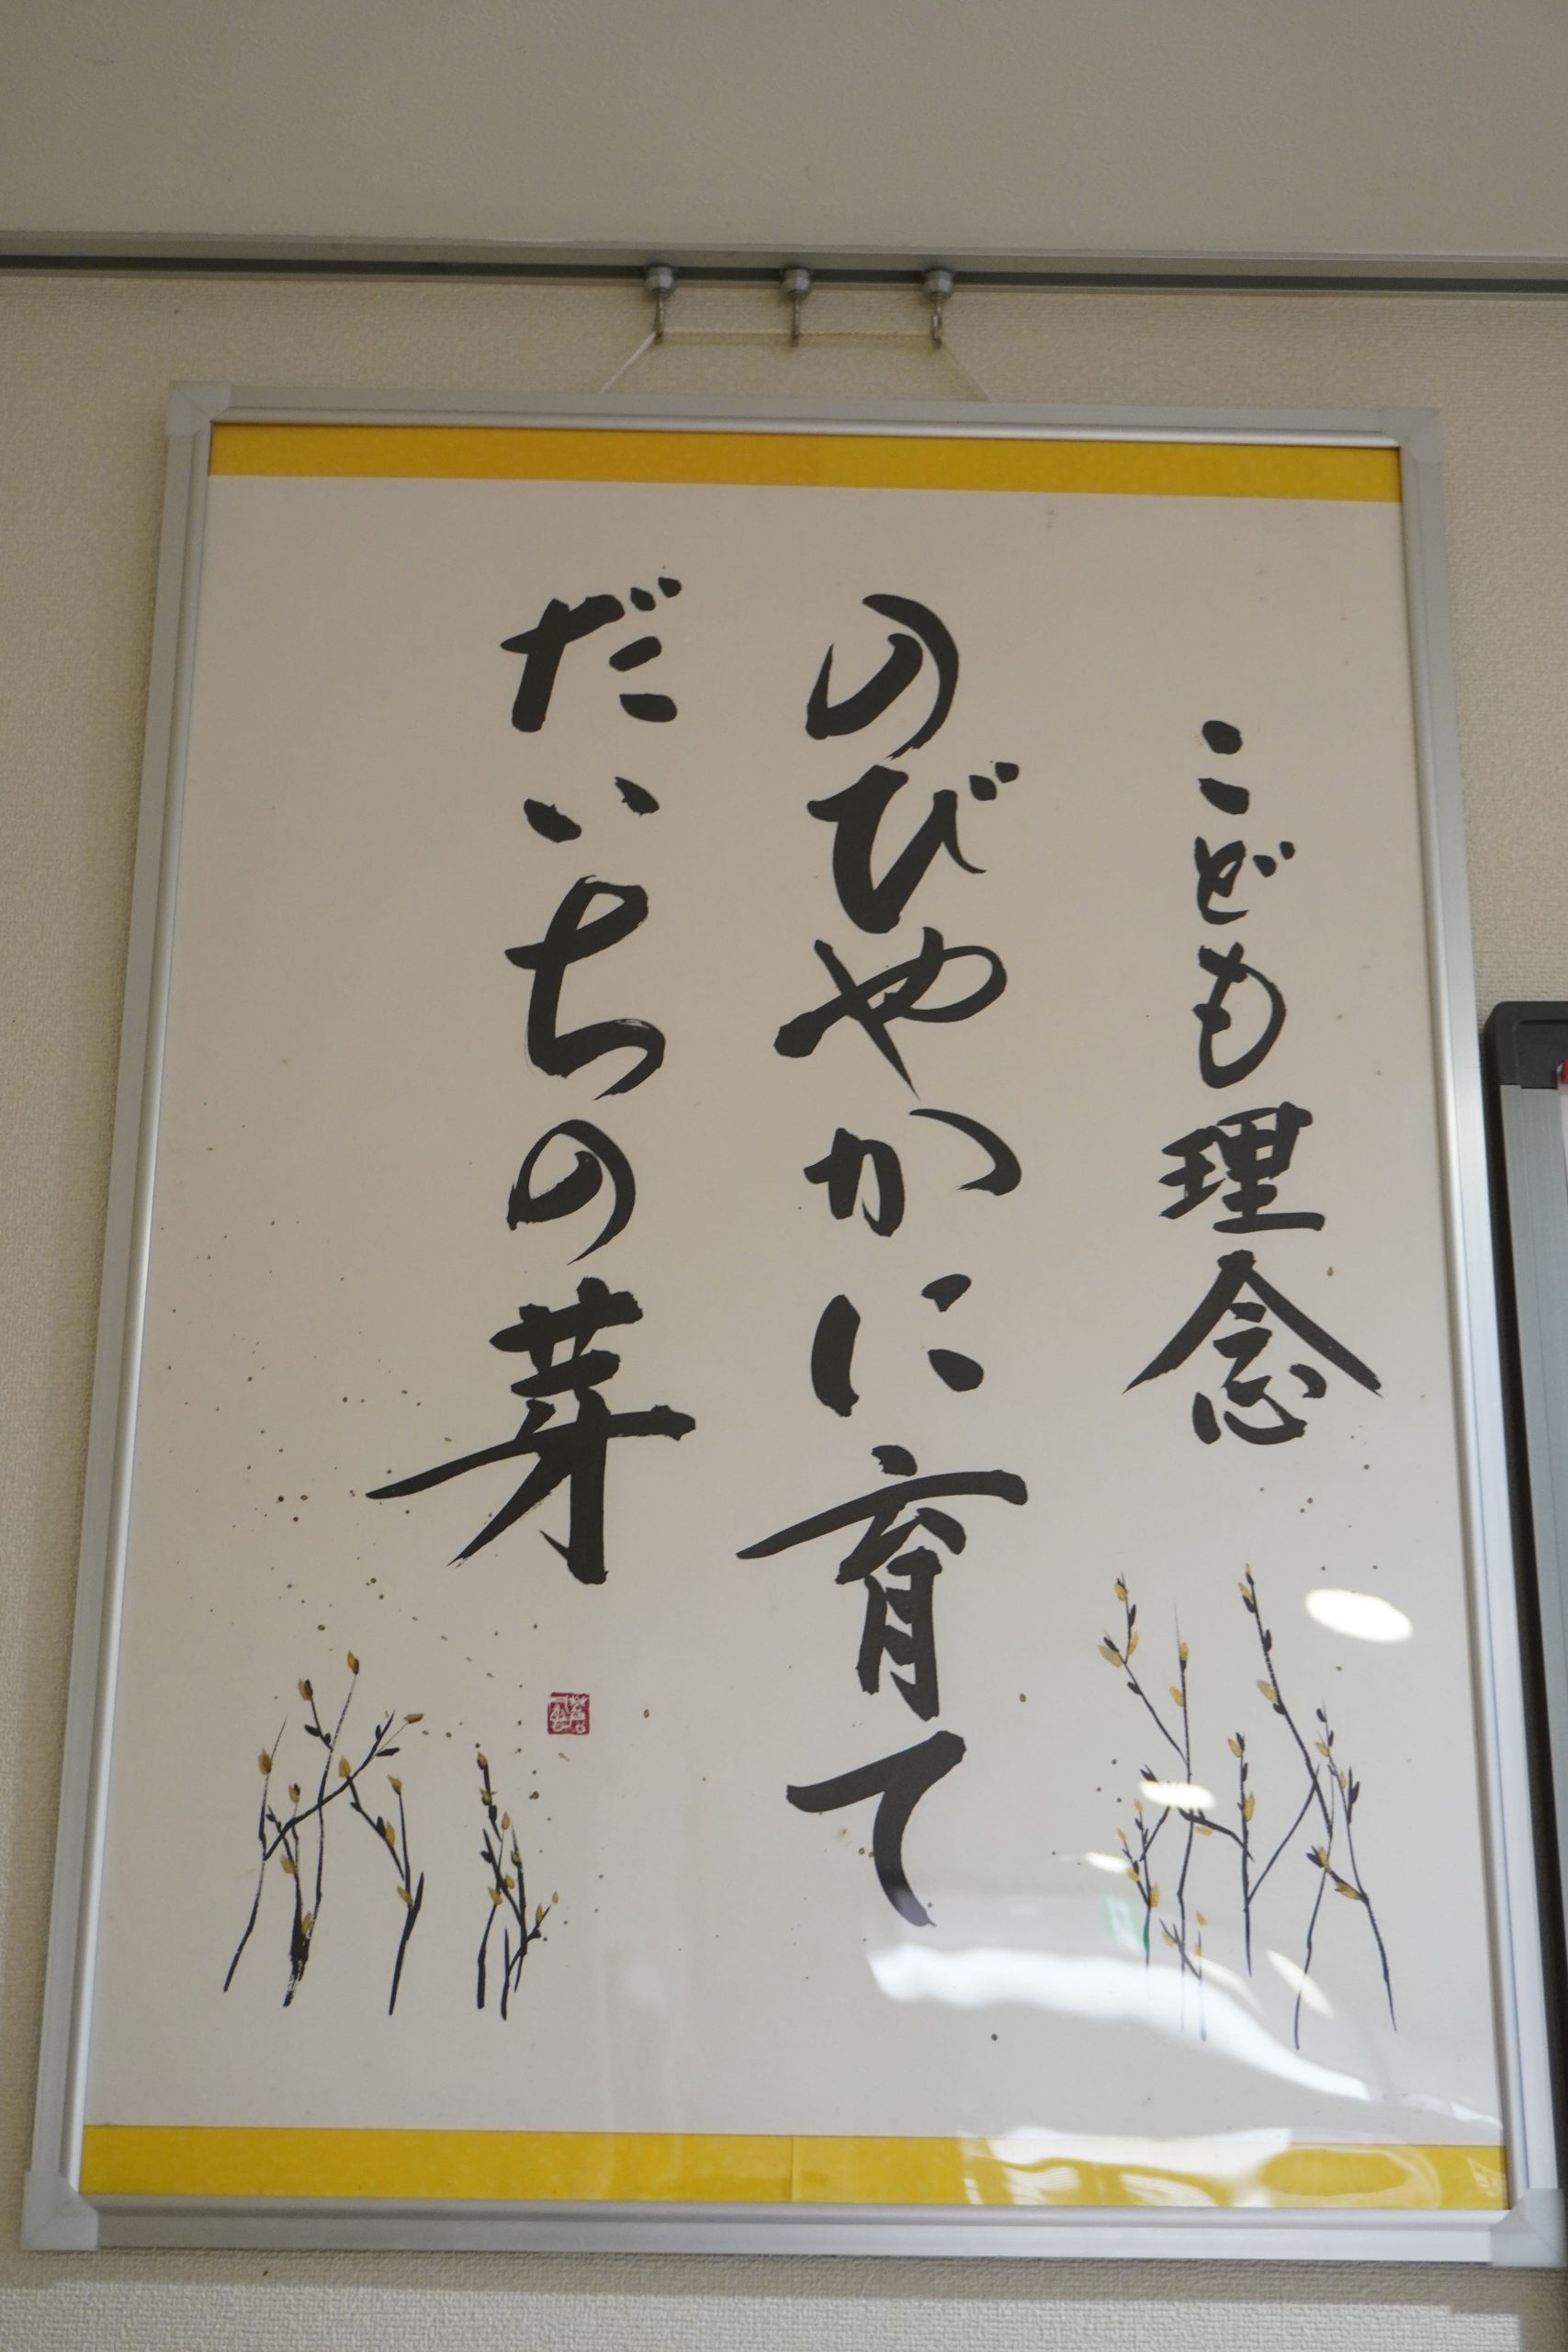 こども理念
のびやかに育て
だいちの芽